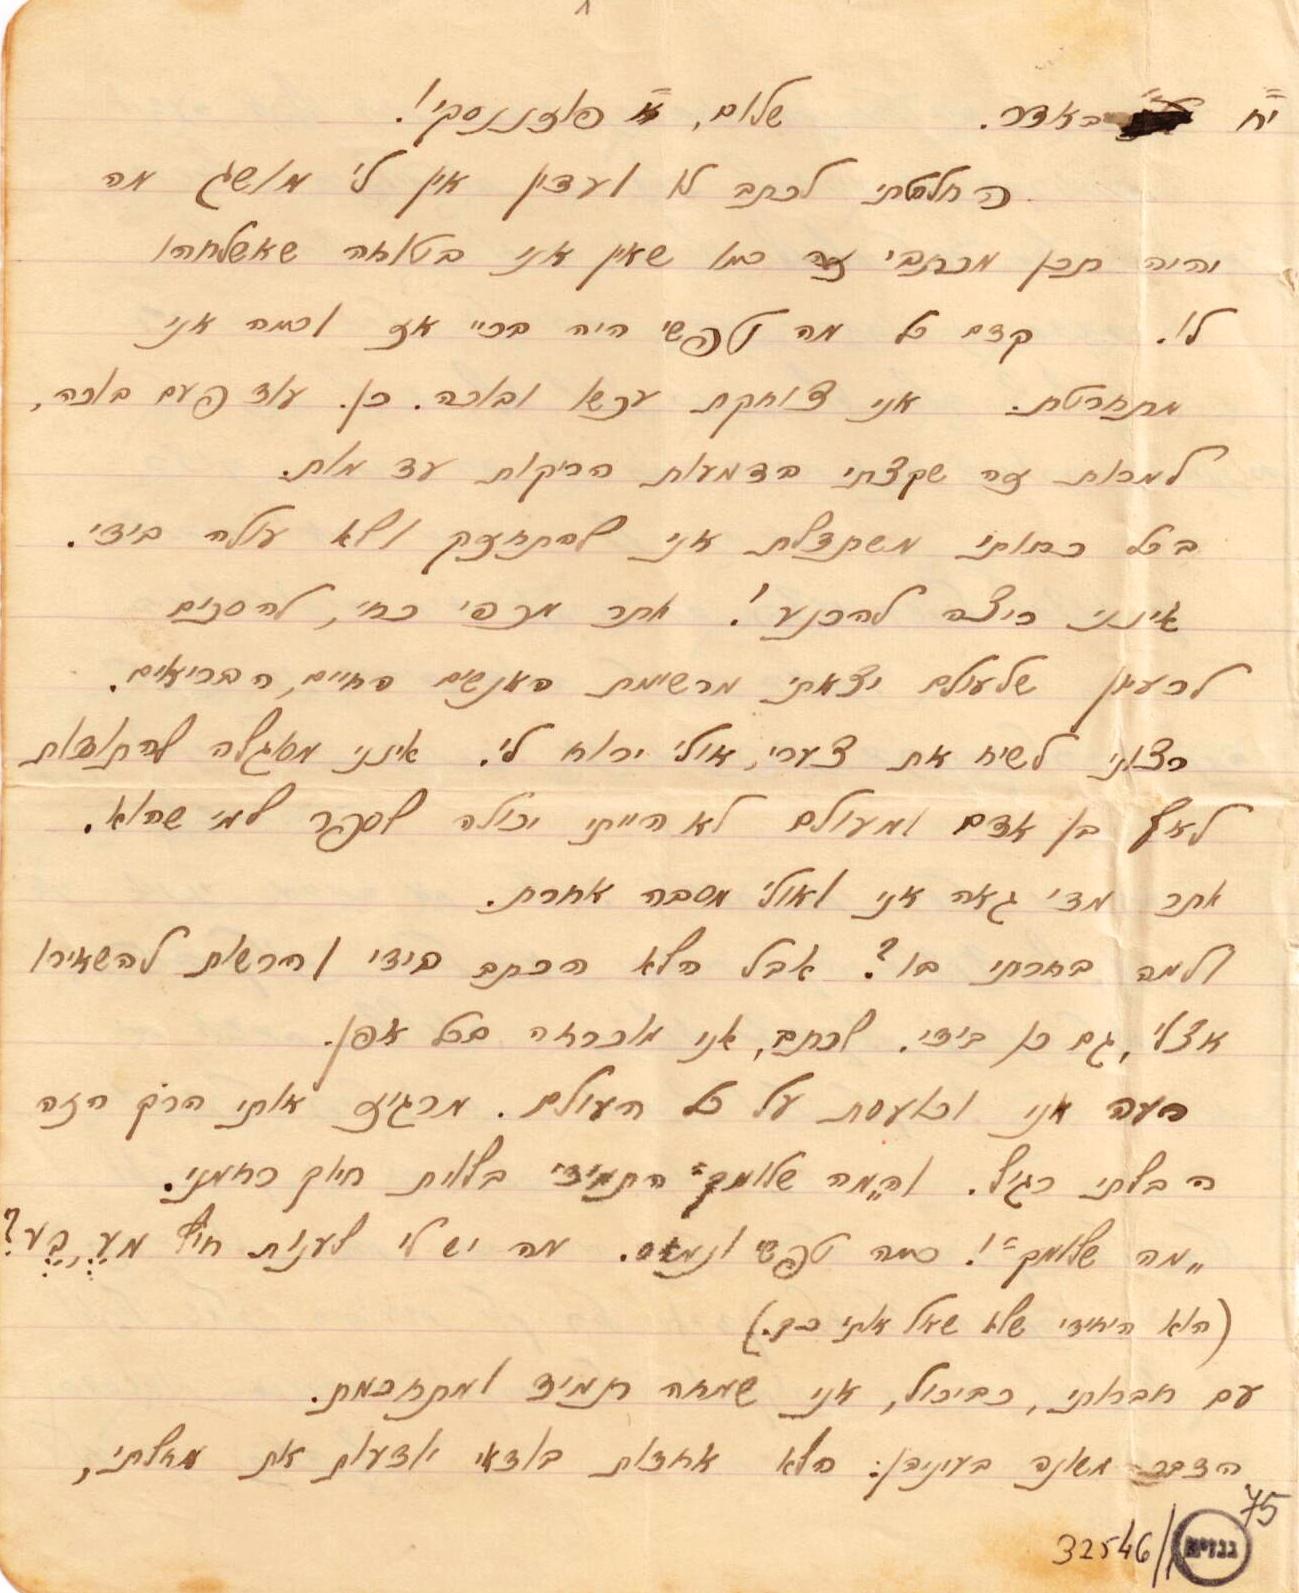 י"ח באדר. שלום, א" פוזננסקי!
החלטתי לכתב לו ועדין אין לי מושג מה
יהיה תכן מכתבי זה כמו שאין אני בטוחה שאשלחהו
לו. קדם כל מה טפשי היה בכיי אז וכמה אני
מתחרטת. אני צוחקת עכשו ובוכה. כן. עוד פעם בוכה,
למרות זה שקצתי בדמעות הריקות עד מות.
בכל כחותי משתדלת אני להתחזק ולא עולה בידי.
אינני רוצה להכנע! יותר מכפי כחי, להסכים
לרעיון שלעולם יצאתי מרשימת האנשים החיים, הבריאים.
רצוני לשיח את צערי, אולי ירוח לי. אינני מסוגלה להתודות
לאף בן אדם ומעולם לא הייתי יכולה לספר למי שהוא.
יותר מדי גאה אני ואולי מסבה אחרת.
ולמה בחרתי בו? אבל הלא הכתב בידי והרשות להשאירו
אצלי, גם כן בידי. לכתב, אני מוכרחה בכל אפן.
רעה אני וכועסת על כל העולם. מרגיז אותי הרֹך הזה
הבלתי רגיל. וה"מה שלומך" התמידי בלוית חיוך רחמני.
"מה שלומך"! כמה טפשי ונמאס. מה יש לי לענות חוץ מֵעַ, רָע?
(הוא היחידי שלא שאל אותי כך.)
עם חברותי, כביכול, אני שמחה תמיד ומתחכמת.
הדבר משונה בעיניהן: הלא אחדות בודאי יודעות את מחלתי,
75
32546/1
גנזים